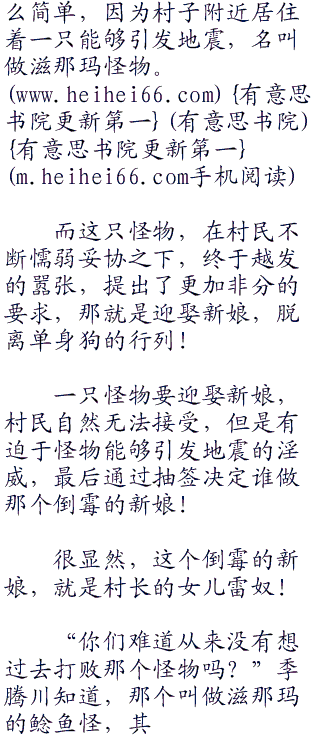 么简单，因为村子附近居住
着一只能够引发地震，名叫
做滋那玛怪物。
(www.heihei66.com) {有意思
书院更新第一} (有意思书院)
{有意思书院更新第一}
(m.heihei66.com手机阅读)
而这只怪物，在村民不
断懦弱妥协之下，终于越发
的嚣张，提出了更加非分的
要求，那就是迎娶新娘，脱
离单身狗的行列！
一只怪物要迎娶新娘，
村民自然无法接受，但是有
迫于怪物能够引发地震的淫
威，最后通过抽签决定谁做
那个倒霉的新娘！
很显然，这个倒霉的新
娘，就是村长的女儿雷奴！
“你们难道从来没有想
过去打败那个怪物吗？”季
腾川知道，那个叫做滋那玛
的鲶鱼怪，其